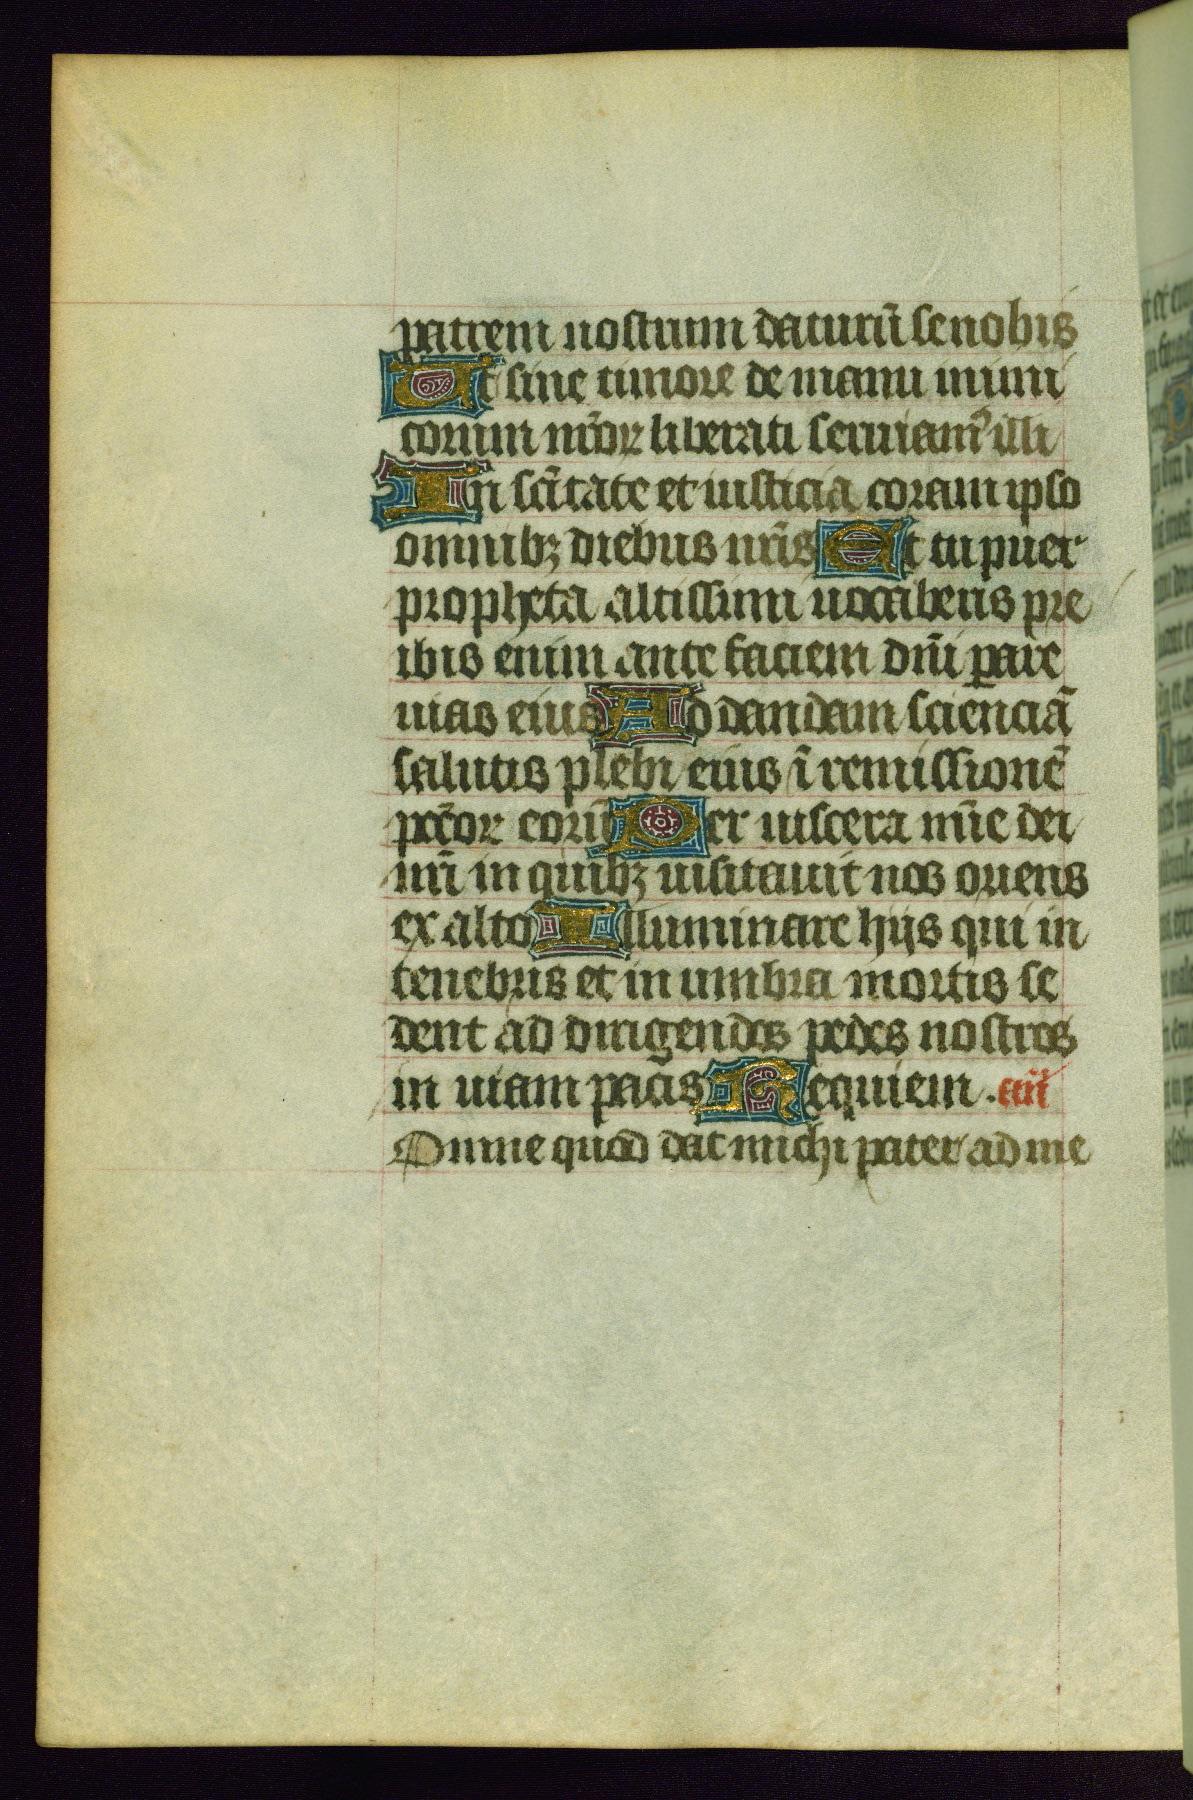 patrem nostrum daturū se nobis
Ut sine timore de manu inimi
corum nr̄or liberati seruiam⁹ illi
In sc̄itate et iusticia coram ipso
omnibꝫ diebus nr̄is Et tu puer
propheta altissimi uocaberis pre
ibis enim ante faciem dn̄i ꝑare
uias eius Ad dandam scienciā
salutis plebi eius ī remissionē
pcc̄or eorū Per uiscera mīe dei
nr̄i in quibꝫ uisitauit nos oriens
ex alto Illuminare hijs qui in
tenebris et in umbra mortis se
dent ad dirigendos pedes nostros
in uiam pacis Requiem . an̄
Omne quod dat michi pater ad me